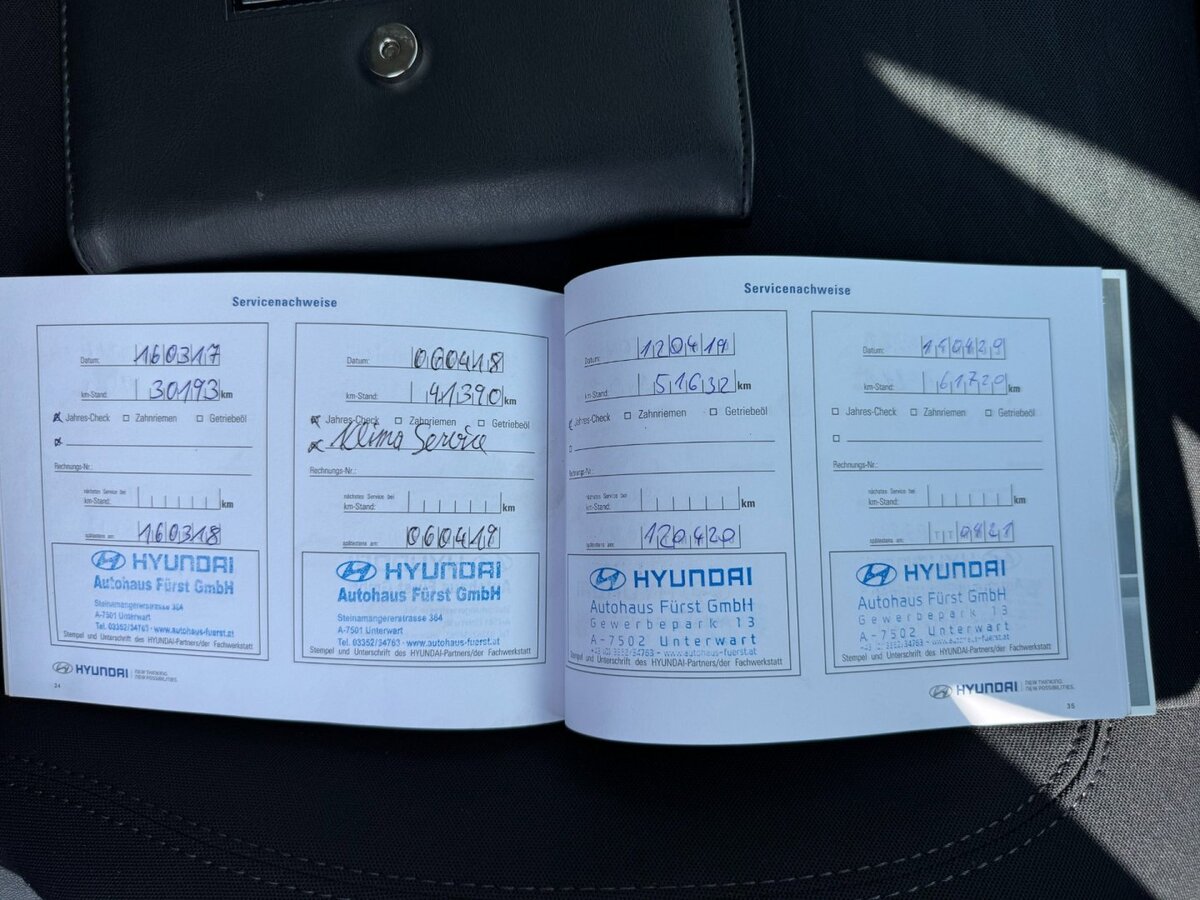 Servicenachweise
Datum: 160317
km-Stand: 30193 km
Jahres-Check Zahnriemen Getriebeöl
Rechnungs-Nr.:
nächstes Service bei
km-Stand: km
spätestens am: 160318
HYUNDAI
Autohaus Fürst GmbH
Steinamangererstrasse 364
A-7501 Unterwart
Tel. 03352/34763 - www.autohaus-fuerst.at
Stempel und Unterschrift des HYUNDAI-Partners/der Fachwerkstatt
Datum: 060418
km-Stand: 41390 km
Jahres-Check Zahnriemen Getriebeöl
Klima Service
Rechnungs-Nr.:
nächstes Service bei
km-Stand: km
spätestens am: 060419
HYUNDAI
Autohaus Fürst GmbH
Steinamangererstrasse 364
A-7501 Unterwart
Tel. 03352/34763 - www.autohaus-fuerst.at
Stempel und Unterschrift des HYUNDAI-Partners/der Fachwerkstatt
HYUNDAI NEW THINKING.
NEW POSSIBILITIES.
34
Servicenachweise
Datum: 120419
km-Stand: 51632 km
Jahres-Check Zahnriemen Getriebeöl
Rechnungs-Nr.:
nächstes Service bei
km-Stand: km
spätestens am: 120420
HYUNDAI
Autohaus Fürst GmbH
Gewerbepark 13
A-7502 Unterwart
34763 - www.autohaus-fuerst.at
Stempel und Unterschrift des HYUNDAI-Partners/der Fachwerkstatt
Datum:
km-Stand: 61720 km
Jahres-Check Zahnriemen Getriebeöl
Rechnungs-Nr.:
nächstes Service bei
km-Stand: km
spätestens am:
HYUNDAI
Autohaus Fürst GmbH
Gewerbepark 13
A-7502 Unterwart
Stempel und Unterschrift des HYUNDAI-Partners/der Fachwerkstatt
HYUNDAI NEW THINKING.
NEW POSSIBILITIES.
35